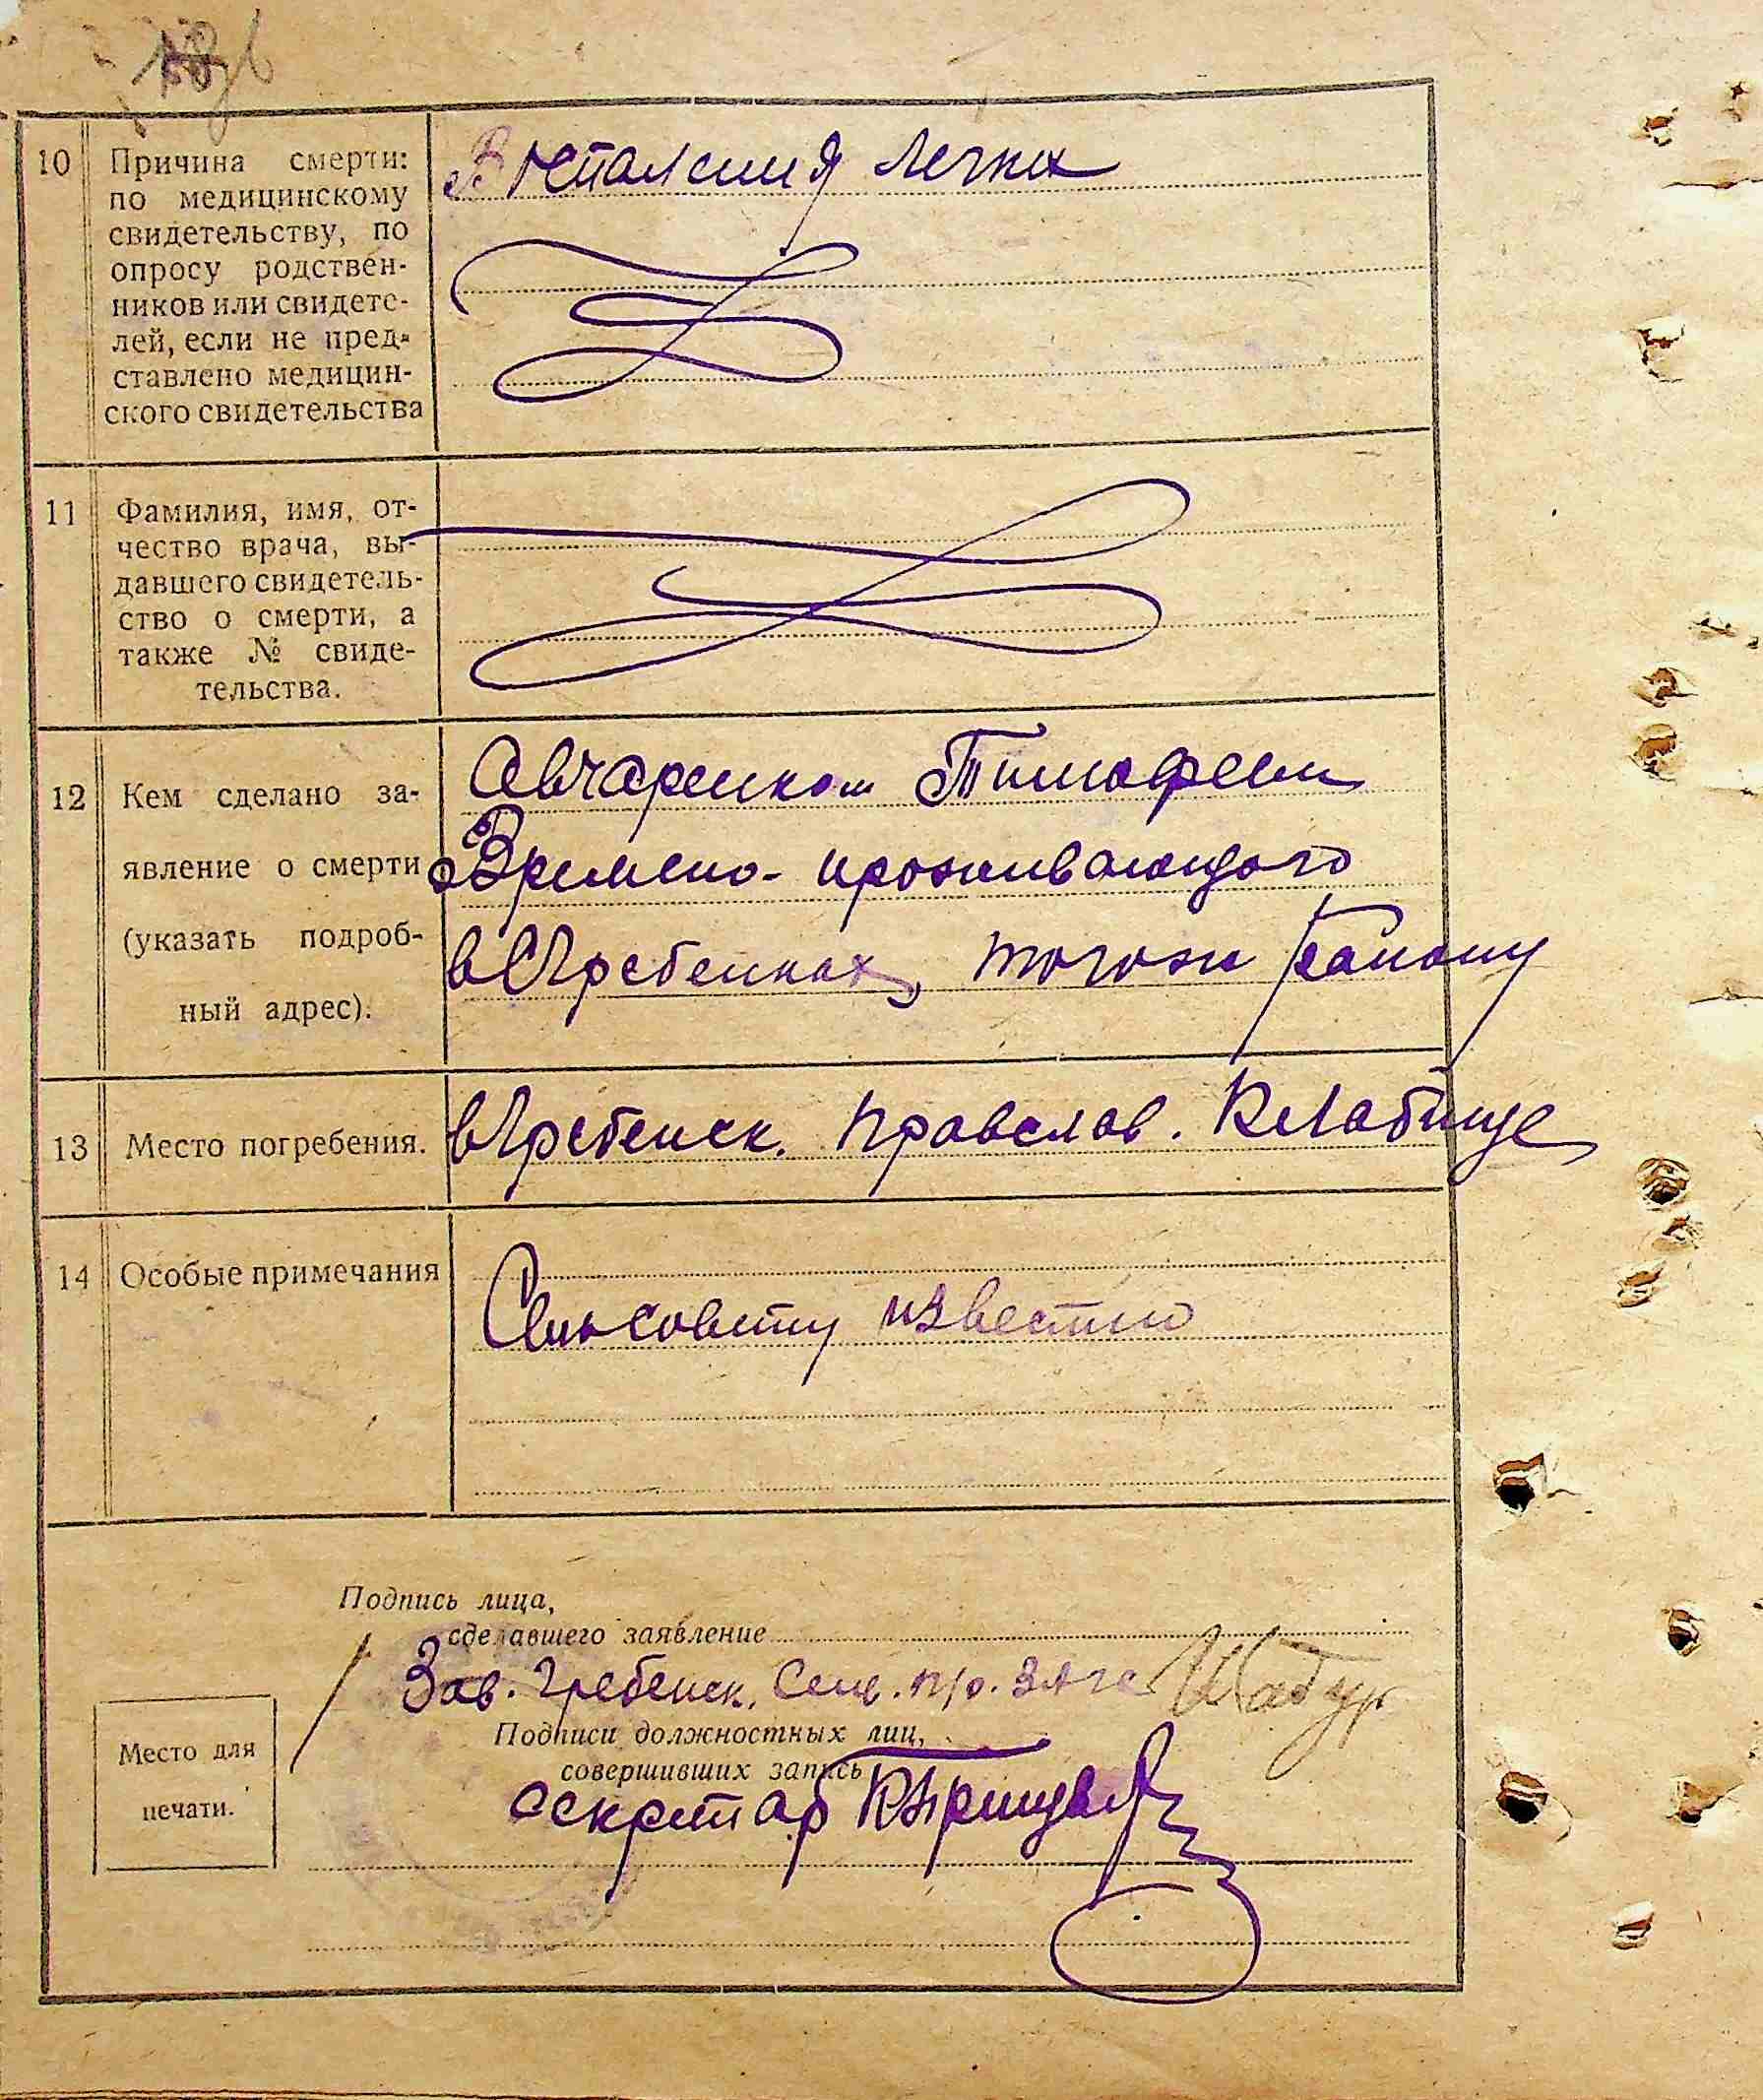 10 Причина смерти:
по медицинскому
свидетельству, по
опросу родствен-
ников или свидете-
лей, если не пред-
ставлено медицин-
ского свидетельства
легких
11 Фамилия, имя, от-
чество врача, вы-
давшего свидетель-
ство о смерти, а
также № свиде-
тельства.
12 Кем сделано за-
явление о смерти
(указать подроб-
ный адрес).
Авчаренком Тимофеем
Времено-проживающого
в с Гребенках, тогоже району
13 Место погребения.
в Гребенск. православ. Клабище
14 Особые примечания
Сельсовету известно
Подпись лица,
сделавшего заявление
Зав. Гребенск. Сель. п/о. ЗАГС
Подписи должностных лиц,
совершивших запись
секретар
Место для
печати.